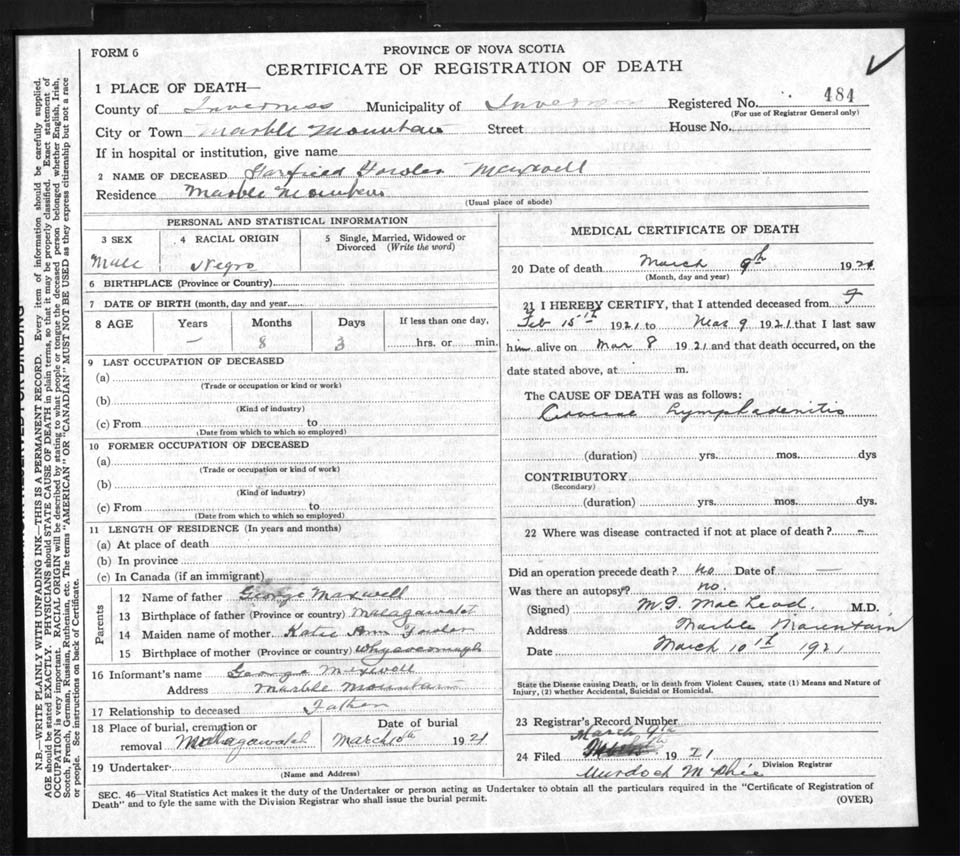 FORM 6
PROVINCE OF NOVA SCOTIA
CERTIFICATE OF REGISTRATION OF DEATH
1 PLACE OF DEATH—
County of Inverness Municipality of Inverness Registered No. 484
(For use of Registrar General only)
City or Town Marble Mountain Street House No.
If in hospital or institution, give name
2 NAME OF DECEASED Garfield Maxwell
Residence Marble Mountain
(Usual place of abode)
PERSONAL AND STATISTICAL INFORMATION
3 SEX 4 RACIAL ORIGIN 5 Single, Married, Widowed or
Divorced (Write the word)
Male Negro
6 BIRTHPLACE (Province or Country)
7 DATE OF BIRTH (month, day and year
8 AGE Years Months Days If less than one day,
— 8 3 hrs. or min.
9 LAST OCCUPATION OF DECEASED
(a)
(Trade or occupation or kind or work)
(b)
(Kind of industry)
(c) From to
(Date from which to which so employed)
10 FORMER OCCUPATION OF DECEASED
(a)
(Trade or occupation or kind of work)
(b)
(Kind of industry)
(c) From to
(Date from which to which so employed)
11 LENGTH OF RESIDENCE (In years and months)
(a) At place of death
(b) In province
(c) In Canada (if an immigrant)
Parents
12 Name of father George Maxwell
13 Birthplace of father (Province or country) Malagawatch
14 Maiden name of mother Katie Ann
15 Birthplace of mother (Province or country) Whycocomagh
16 Informant's name George Maxwell
Address Marble Mountain
17 Relationship to deceased Father
18 Place of burial, cremation or Date of burial
removal Malagawatch March 10th 1921
19 Undertaker
(Name and Address)
MEDICAL CERTIFICATE OF DEATH
20 Date of death March 9th 1921
(Month, day and year)
21 I HEREBY CERTIFY, that I attended deceased from
Feb 15th 1921 to Mar 9 1921 that I last saw
him alive on Mar 8 1921 and that death occurred, on the
date stated above, at m.
The CAUSE OF DEATH was as follows:
Lymphadenitis
(duration) yrs. mos. dys
CONTRIBUTORY
(Secondary)
(duration) yrs. mos. dys.
22 Where was disease contracted if not at place of death? –
Did an operation precede death? no Date of —
Was there an autopsy? no.
(Signed) MacLeod. M.D.
Address Marble Mountain
Date March 10th 1921
State the Disease causing Death, or in death from Violent Causes, state (1) Means and Nature of
Injury, (2) whether Accidental, Suicidal or Homicidal.
23 Registrar's Record Number
March 9th
24 Filed 19
Murdoch McPhie Division Registrar
SEC. 46—Vital Statistics Act makes it the duty of the Undertaker or person acting as Undertaker to obtain all the particulars required in the "Certificate of Registration of
Death" and to fyle the same with the Division Registrar who shall issue the burial permit.
(OVER)
N.B.—WRITE PLAINLY WITH UNFADING INK—THIS IS A PERMANENT RECORD. Every item of information should be carefully supplied.
AGE should be stated EXACTLY. PHYSICIANS should STATE CAUSE OF DEATH in plain terms, so that it may be properly classified. Exact statement of
OCCUPATION is very important. RACIAL ORIGIN will be described by stating to what people or tongue the deceased person belonged whether English, Irish,
Scotch, French, German, Russian, Ruthenian, etc. The terms "AMERICAN" OR "CANADIAN" MUST NOT BE USED as they express citizenship but not a race
or people. See instructions on back of Certificate.